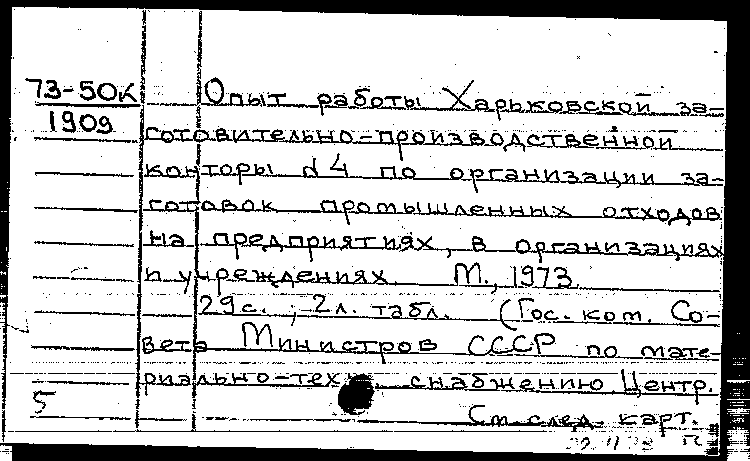 73-50к
1909
Опыт работы Харьковской за-
готовительно-производственной
конторы №4 по организации за-
готовок промышленных отходов
на предприятиях, в организациях
и учреждениях. М., 1973.
29с.; 2л. табл. (Гос. ком. Со-
вета Министров СССР по мате-
риально-техн. снабжению Центр.
5
См. след. карт.